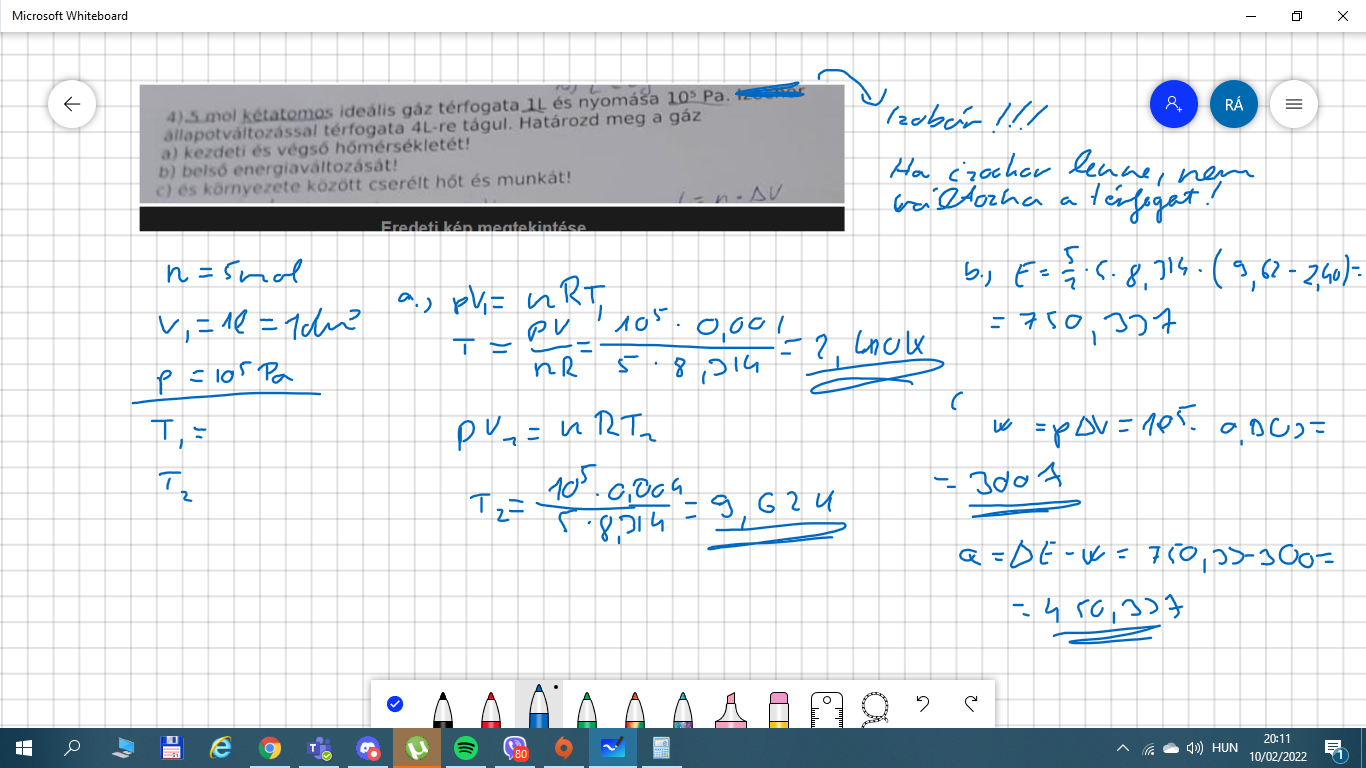 Microsoft Whiteboard
4) 5 mol kétatomos ideális gáz térfogata 1L és nyomása 10⁵ Pa.
állapotváltozással térfogata 4L-re tágul. Határozd meg a gáz
a) kezdeti és végső hőmérsékletét!
b) belső energiaváltozását!
c) és környezete között cserélt hőt és munkát!
Eredeti kép megtekintése
RÁ
Izobár!!!
Ha izochor lenne, nem
változna a térfogat!
n = 5 mol
V₁ = 1l = 1dm³
p = 10⁵ Pa
T₁ =
T₂
a., pV₁ = nRT₁
T = pV/nR = 10⁵ · 0,001 / 5 · 8,314 = 2,40 K
pV₂ = nRT₂
T₂ = 10⁵ · 0,004 / 5 · 8,314 = 9,62 K
b., E = 5/2 · 5 · 8,314 · (9,62 - 2,40) =
= 750,33 J
c
W = pΔV = 10⁵ · 0,003 =
= 300 J
Q = ΔE - W = 750,33 - 300 =
= 450,33 J
80
HUN
20:11
10/02/2022
1